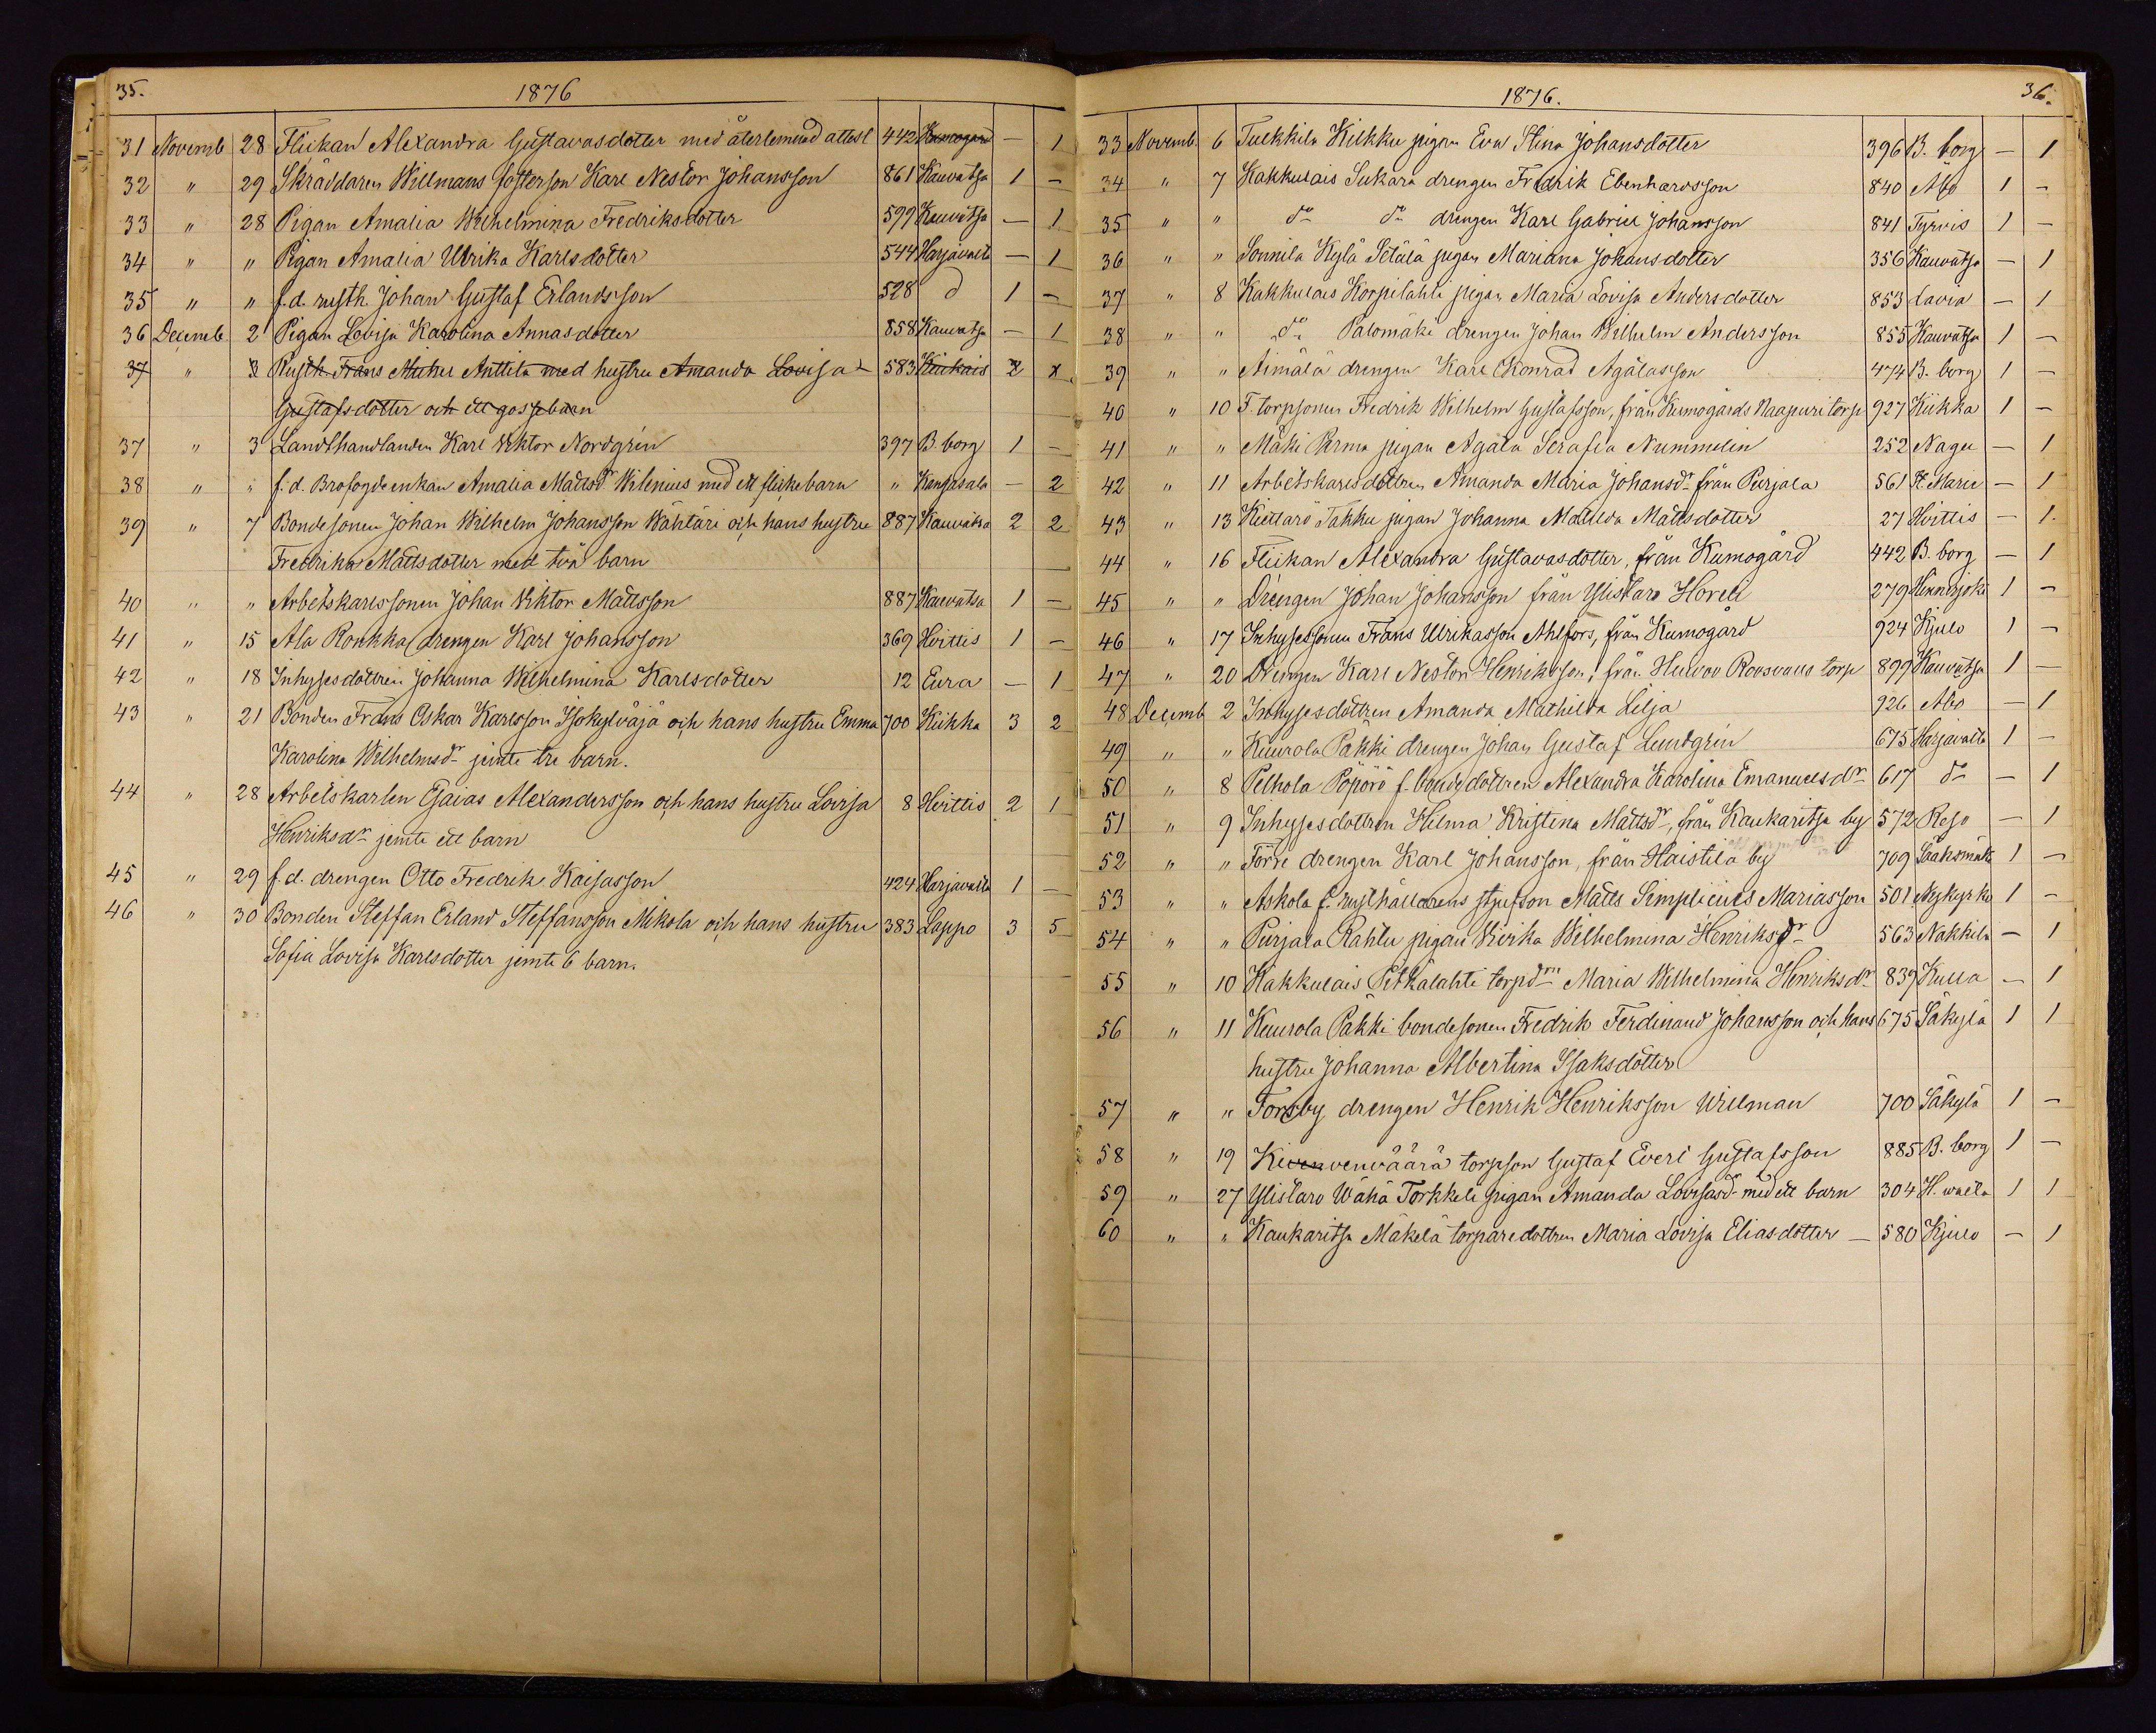 35.
1876
31 Novemb. 28 Flickan Alexandra Gustavasdotter med återlemnad attest 442 Kumogård — 1
32 " 29 Skräddaren Willmans fosterson Karl Nestor Johansson 861 Kauvatsa 1 —
33 " 28 Pigan Amalia Wilhelmina Fredriksdotter 599 Kauvatsa — 1
34 " " Pigan Amalia Ulrika Karlsdotter 544 Harjavalta — 1
35 " " f.d. rusth. Johan Gustaf Erlandsson 528 d 1 —
36 Decemb. 2 Pigan Lovisa Karolina Annasdotter 858 Kauvatsa — 1
37 " 3 Rusth. Frans Mickel Anttila med hustru Amanda Lovisa 583 Kiukais 2 x
Gustafsdotter och ett gossebarn
37 " 3 Landthandlanden Karl Viktor Nordgrén 397 B. borg 1 —
38 " " f.d. Brofogdeenkan Amalia Mattsdr Wilenius med ett flickebarn " Kangasala — 2
39 " 7 Bondesonen Johan Wilhelm Johansson Wähtäri och hans hustru 887 Kauvatsa 2 2
Fredrika Mattsdotter med två barn
40 " " Arbetskarlssonen Johan Viktor Mattsson 887 Kauvatsa 1 —
41 " 15 Ala Ronkka drengen Karl Johansson 369 Hvittis 1 —
42 " 18 Inhysesdottren Johanna Wilhelmina Karlsdotter 12 Eura — 1
43 " 21 Bonden Frans Oskar Karlsson Isokylväjä och hans hustru Emma 700 Kiikka 3 2
Karolina Wilhelmsdr jemte tre barn.
44 " 28 Arbetskarlen Esaias Alexandersson och hans hustru Lovisa 8 Hvittis 2 1
Henriksdr jemte ett barn
45 " 29 f.d. drengen Otto Fredrik Kaisasson 424 Harjavalta 1 —
46 " 30 Bonden Steffan Erland Steffansson Mikola och hans hustru 383 Lappo 3 5
Sofia Lovisa Karlsdotter jemte 6 barn.
1876.
36.
33 Novemb. 6 Tulkkila Kilkku pigan Eva Stina Johansdotter 396 B. borg — 1
34 " 7 Kakkulais Sukara drengen Fredrik Ebenhardsson 840 Åbo 1 —
35 " " do do drengen Karl Gabriel Johansson 841 Tyrvis 1 —
36 " " Sonnila Kylä Setälä pigan Mariana Johansdotter 356 Kauvatsa — 1
37 " 8 Kakkulais Korpilahti pigan Maria Lovisa Andersdotter 853 Lavia — 1
38 " " do Palomäki drengen Johan Wilhelm Andersson 855 Kauvatsa 1 —
39 " " Äimälä drengen Karl Konrad Agalasson 474 B. borg 1 —
40 " 10 F. torpsonen Fredrik Wilhelm Gustafsson, från Kumogårds Naapuri torp 927 Kiikka 1 —
41 " " Mäki Perma pigan Agata Serafia Nummelin 252 Nagu — 1
42 " 11 Arbetskarlsdottren Amanda Maria Johansdr från Purjala 561 St. Marie — 1
43 " 13 Kiettarö Takku pigan Johanna Matilda Mattsdotter 27 Hvittis — 1.
44 " 16 Flickan Alexandra Gustavasdotter, från Kumogård 442 B. borg — 1
45 " " Drengen Johan Johansson från Ylistaro Horeli 279 Hinnerjoki 1 —
46 " 17 Inhysessonen Frans Ulrikasson Ahlfors, från Kumogård 924 Kjulo 1 —
47 " 20 Drengen Karl Nestor Henriksson, från Huivoo Roosvalls torp 899 Kauvatsa 1 —
48 Decemb. 2 Inhysesdottren Amanda Mathilda Lilja 926 Åbo — 1
49 " " Kuurola Päkki drengen Johan Gustaf Lundgrén 675 Harjavalta 1 —
50 " 8 Pelhola Pöpörö f. bondedottren Alexandra Karolina Emanuelsdr 617 do — 1
51 " 9 Inhysesdottren Hilma Kristina Mattsdr, från Kaukaritsa by 572 Reso — 1
52 " " Förre drengen Karl Johansson, från Haistila by 709 Sääksmäki 1 —
53 " " Askola f. rusthållarens styfson Matts Simplicius Mariasson 501 Nykyrko 1 —
54 " " Purjala Rahtu pigan Vivika Wilhelmina Henriksdr 563 Nakkila — 1
55 " 10 Kakkulais Pitkälahti torpdrn Maria Wilhelmina Henriksdr 839 Kulla — 1
56 " 11 Kuurola Päkki bondesonen Fredrik Ferdinand Johansson och hans 675 Säkylä 1 1
hustru Johanna Albertina Isaksdotter
57 " " Forsby drengen Henrik Henriksson Willman 700 Säkylä 1 —
58 " 19 Kivenvenväärä torpson Gustaf Everi Gustafsson 885 B. borg 1 —
59 " 27 Ylistaro Wähä Torkkeli pigan Amanda Lovisasdr med ett barn 304 H. walta 1 1
60 " " Kaukaritsa Mäkelä torparedottren Maria Lovisa Eliasdotter — 580 Kjulo — 1